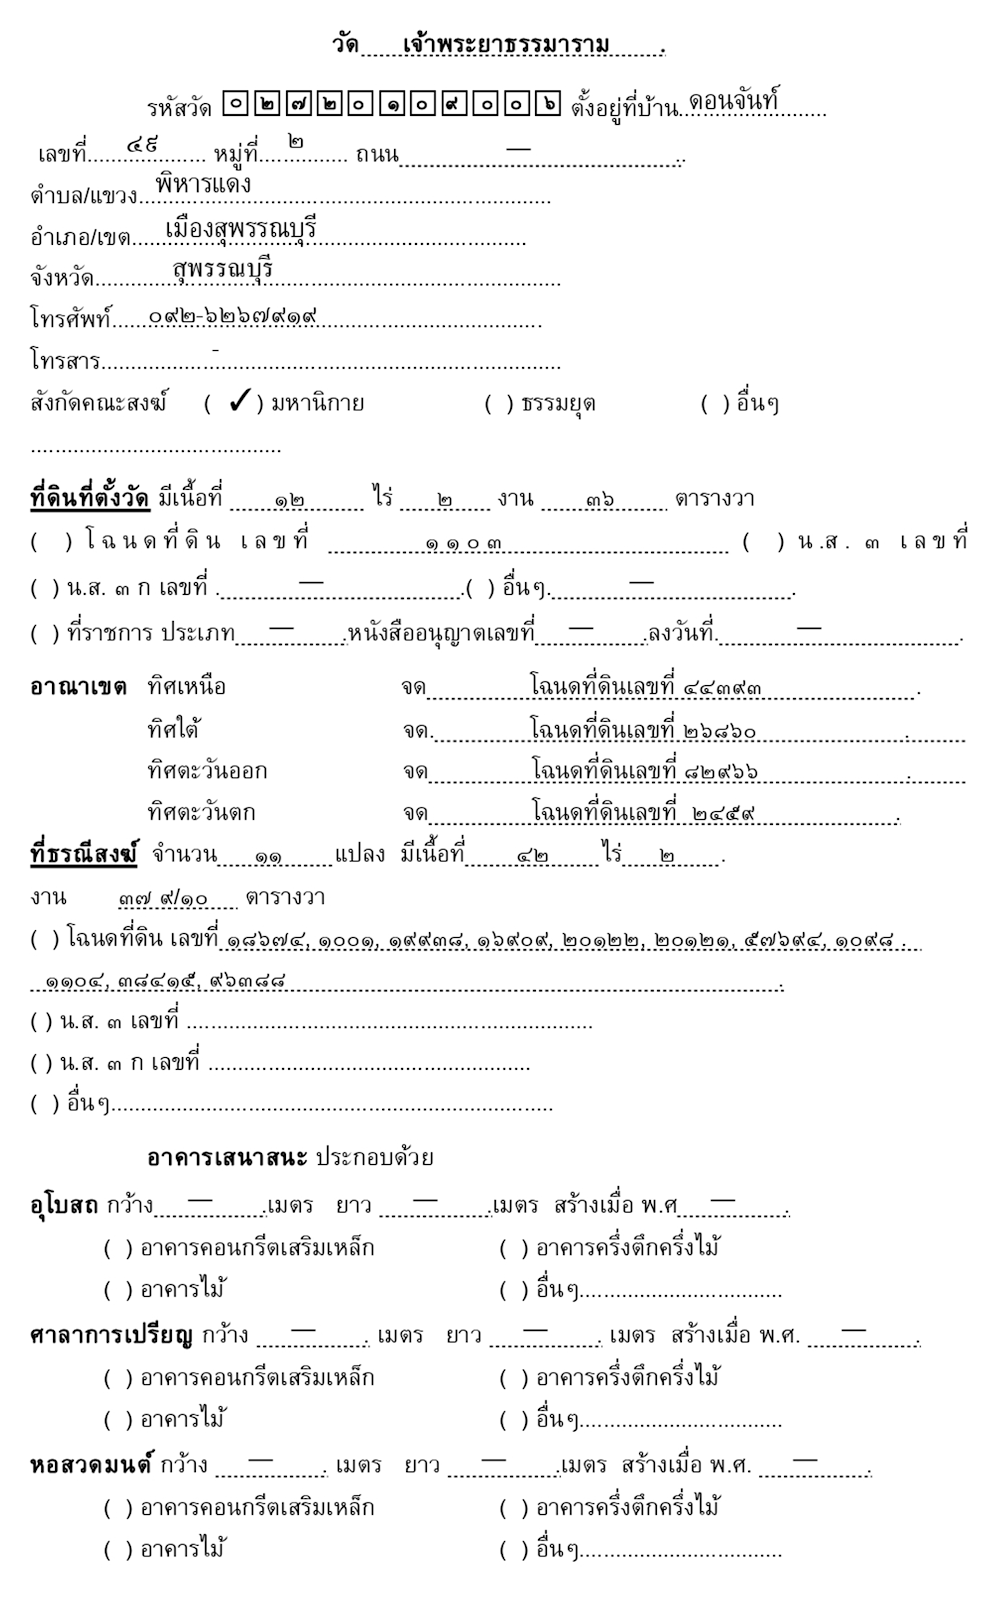 วัด.......เจ้าพระยาธรรมาราม.........
รหัสวัด ๐ ๒ ๗ ๒ ๐ ๑ ๐ ๙ ๐ ๐ ๖ ตั้งอยู่ที่บ้าน..ดอนจันท์........
เลขที่......๔๙........ หมู่ที่.....๒....... ถนน...........—...........
ตำบล/แขวง...พิหารแดง..................................................
อำเภอ/เขต.....เมืองสุพรรณบุรี...................................
จังหวัด.............สุพรรณบุรี................................................
โทรศัพท์......๐๙๒-๖๒๖๗๙๑๙......................................
โทรสาร...................-..........................................................
สังกัดคณะสงฆ์ ( ✓ ) มหานิกาย ( ) ธรรมยุต ( ) อื่นๆ
..........................................
ที่ดินที่ตั้งวัด มีเนื้อที่ ......๑๒........ ไร่ .....๒..... งาน ......๓๖....... ตารางวา
( ) โฉนดที่ดิน เลขที่ ............๑๑๐๓............................ ( ) น.ส. ๓ เลขที่
( ) น.ส. ๓ ก เลขที่ ..........—...................( ) อื่นๆ...........—....................
( ) ที่ราชการ ประเภท.....—.......หนังสืออนุญาตเลขที่.....—.......ลงวันที่...........—....................
อาณาเขต ทิศเหนือ จด.............โฉนดที่ดินเลขที่ ๔๔๓๙๓....................
ทิศใต้ จด.............โฉนดที่ดินเลขที่ ๒๖๘๖๐..........................
ทิศตะวันออก จด.............โฉนดที่ดินเลขที่ ๘๒๙๖๖..........................
ทิศตะวันตก จด.............โฉนดที่ดินเลขที่ ๒๔๕๙....................
ที่ธรณีสงฆ์ จำนวน.....๑๑.......แปลง มีเนื้อที่.......๔๒......ไร่.....๒......
งาน ๓๗ ๙/๑๐.... ตารางวา
( ) โฉนดที่ดิน เลขที่ ๑๘๖๗๔, ๑๐๐๑, ๑๙๙๓๘, ๑๖๙๐๙, ๒๐๑๒๒, ๒๐๑๒๑, ๕๗๖๙๔, ๑๐๙๘ .
..๑๑๐๔, ๓๘๔๑๕, ๙๖๓๘๘..............................................................
( ) น.ส. ๓ เลขที่ ....................................................................
( ) น.ส. ๓ ก เลขที่ ......................................................
( ) อื่นๆ..........................................................................
อาคารเสนาสนะ ประกอบด้วย
อุโบสถ กว้าง.....—.......เมตร ยาว .....—.......เมตร สร้างเมื่อ พ.ศ.....—.......
( ) อาคารคอนกรีตเสริมเหล็ก ( ) อาคารครึ่งตึกครึ่งไม้
( ) อาคารไม้ ( ) อื่นๆ..................................
ศาลาการเปรียญ กว้าง .....—....... เมตร ยาว .....—....... เมตร สร้างเมื่อ พ.ศ. .....—.......
( ) อาคารคอนกรีตเสริมเหล็ก ( ) อาคารครึ่งตึกครึ่งไม้
( ) อาคารไม้ ( ) อื่นๆ..................................
หอสวดมนต์ กว้าง .....—....... เมตร ยาว .....—.......เมตร สร้างเมื่อ พ.ศ. .....—.......
( ) อาคารคอนกรีตเสริมเหล็ก ( ) อาคารครึ่งตึกครึ่งไม้
( ) อาคารไม้ ( ) อื่นๆ..................................